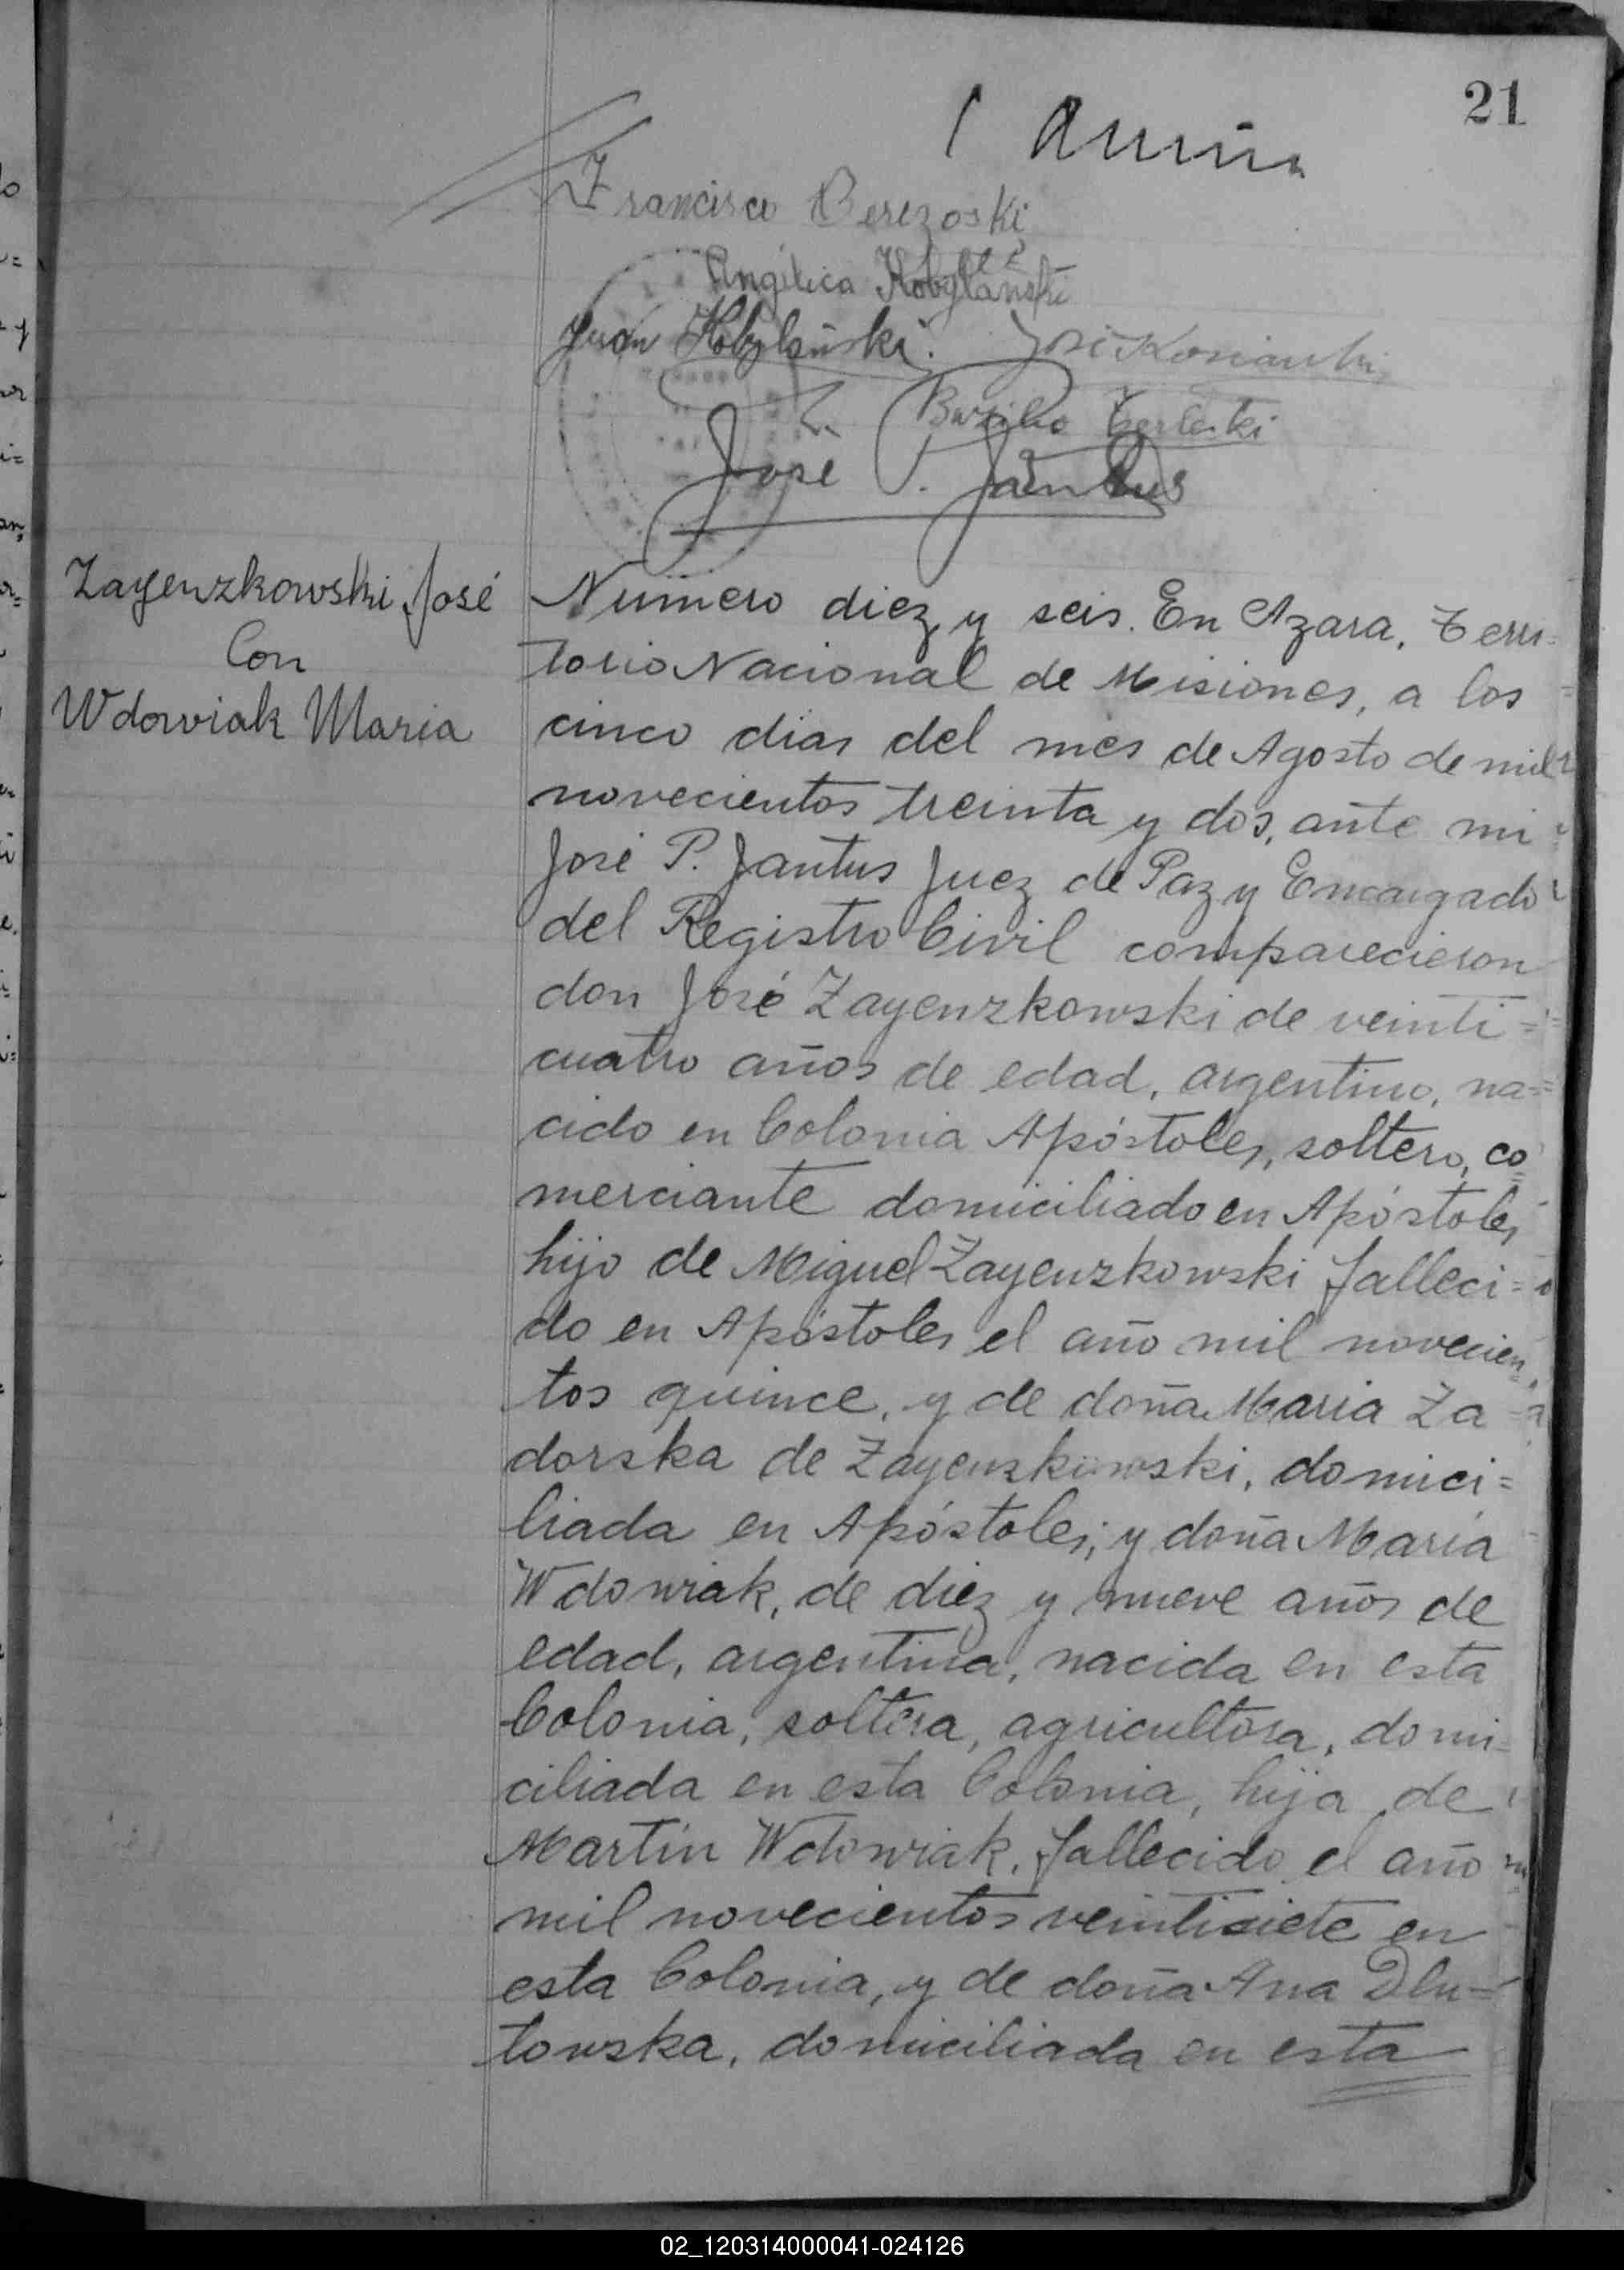 21
Francisco Berezoski
Angélica Kobylanski
Juan Kobylański. José
Bazilio Terlecki
José P. Jantus
Zayenzkowski José
Con
Wdowiak Maria
Número diez y seis. En Azara, Terri=
torio Nacional de Misiones, a los
cinco dias del mes de Agosto de mil
novecientos treinta y dos, ante mi
José P. Jantus Juez de Paz y Encargado
del Registro Civil comparecieron
don José Zayenzkowski de veinti=
cuatro años de edad, argentino, na=
cido en Colonia Apóstoles, soltero, co=
merciante domiciliado en Apóstoles
hijo de Miguel Zayenzkowski falleci=
do en Apóstoles el año mil novecien=
tos quince, y de doña Maria Za=
dorska de Zayenzkowski, domici=
liada en Apóstoles; y doña Maria
Wdowiak, de diez y nueve años de
edad, argentina, nacida en esta
Colonia, soltera, agricultora, domi=
ciliada en esta Colonia, hija de
Martín Wdowiak, fallecido el año
mil novecientos veintisiete en
esta Colonia, y de doña Ana Dlu=
towska, domiciliada en esta
02_120314000041-024126